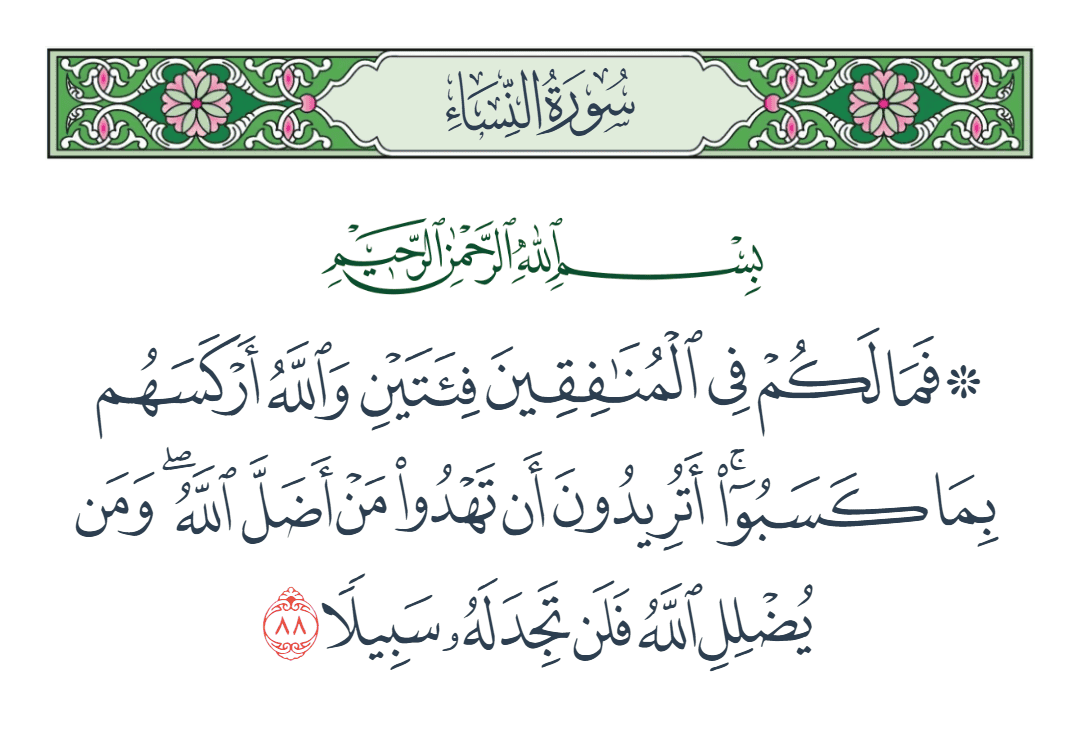 سُورَةُ النِّسَاءِ
بِسْمِ ٱللَّهِ ٱلرَّحْمَٰنِ ٱلرَّحِيمِ
۞ فَمَا لَكُمْ فِى ٱلْمُنَٰفِقِينَ فِئَتَيْنِ وَٱللَّهُ أَرْكَسَهُم
بِمَا كَسَبُوٓا۟ ۚ أَتُرِيدُونَ أَن تَهْدُوا۟ مَنْ أَضَلَّ ٱللَّهُ ۖ وَمَن
يُضْلِلِ ٱللَّهُ فَلَن تَجِدَ لَهُۥ سَبِيلًا ٨٨